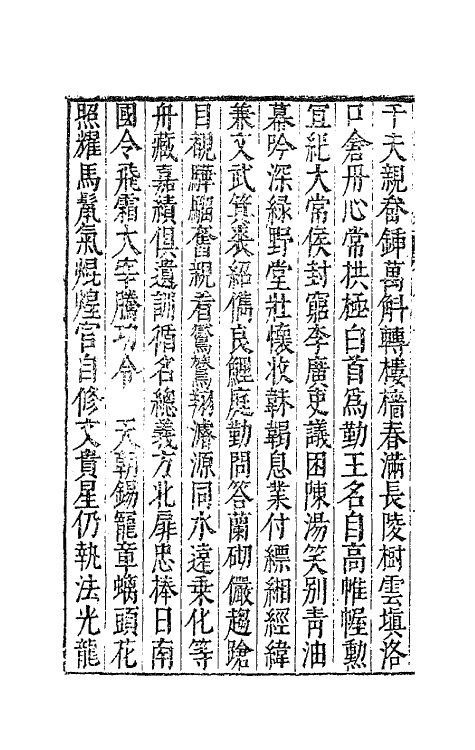 千夫親畚鍤萬斛轉樓檣春滿長陵樹雲塡洛
口倉丹心常拱極白首爲勤王名自高帷幄勲
宜紀大常侯封窮李廣吏議困陳湯笑别青油
幕吟深緑野堂壯懷收韎韐息業付縹緗經緯
兼文武箕裘紹儁良鯉庭勤問答蘭砌儼趨蹌
目覩驊騮奮親看鴛鷟翔濬源同水遠乗化等
舟藏嘉績倶遺訓循名總義方北扉忠棒日南
國令飛霜大宰騰功令　天朝錫寵章螭頭花
照耀馬鬛氣焜煌官自修文貴星仍執法光龍